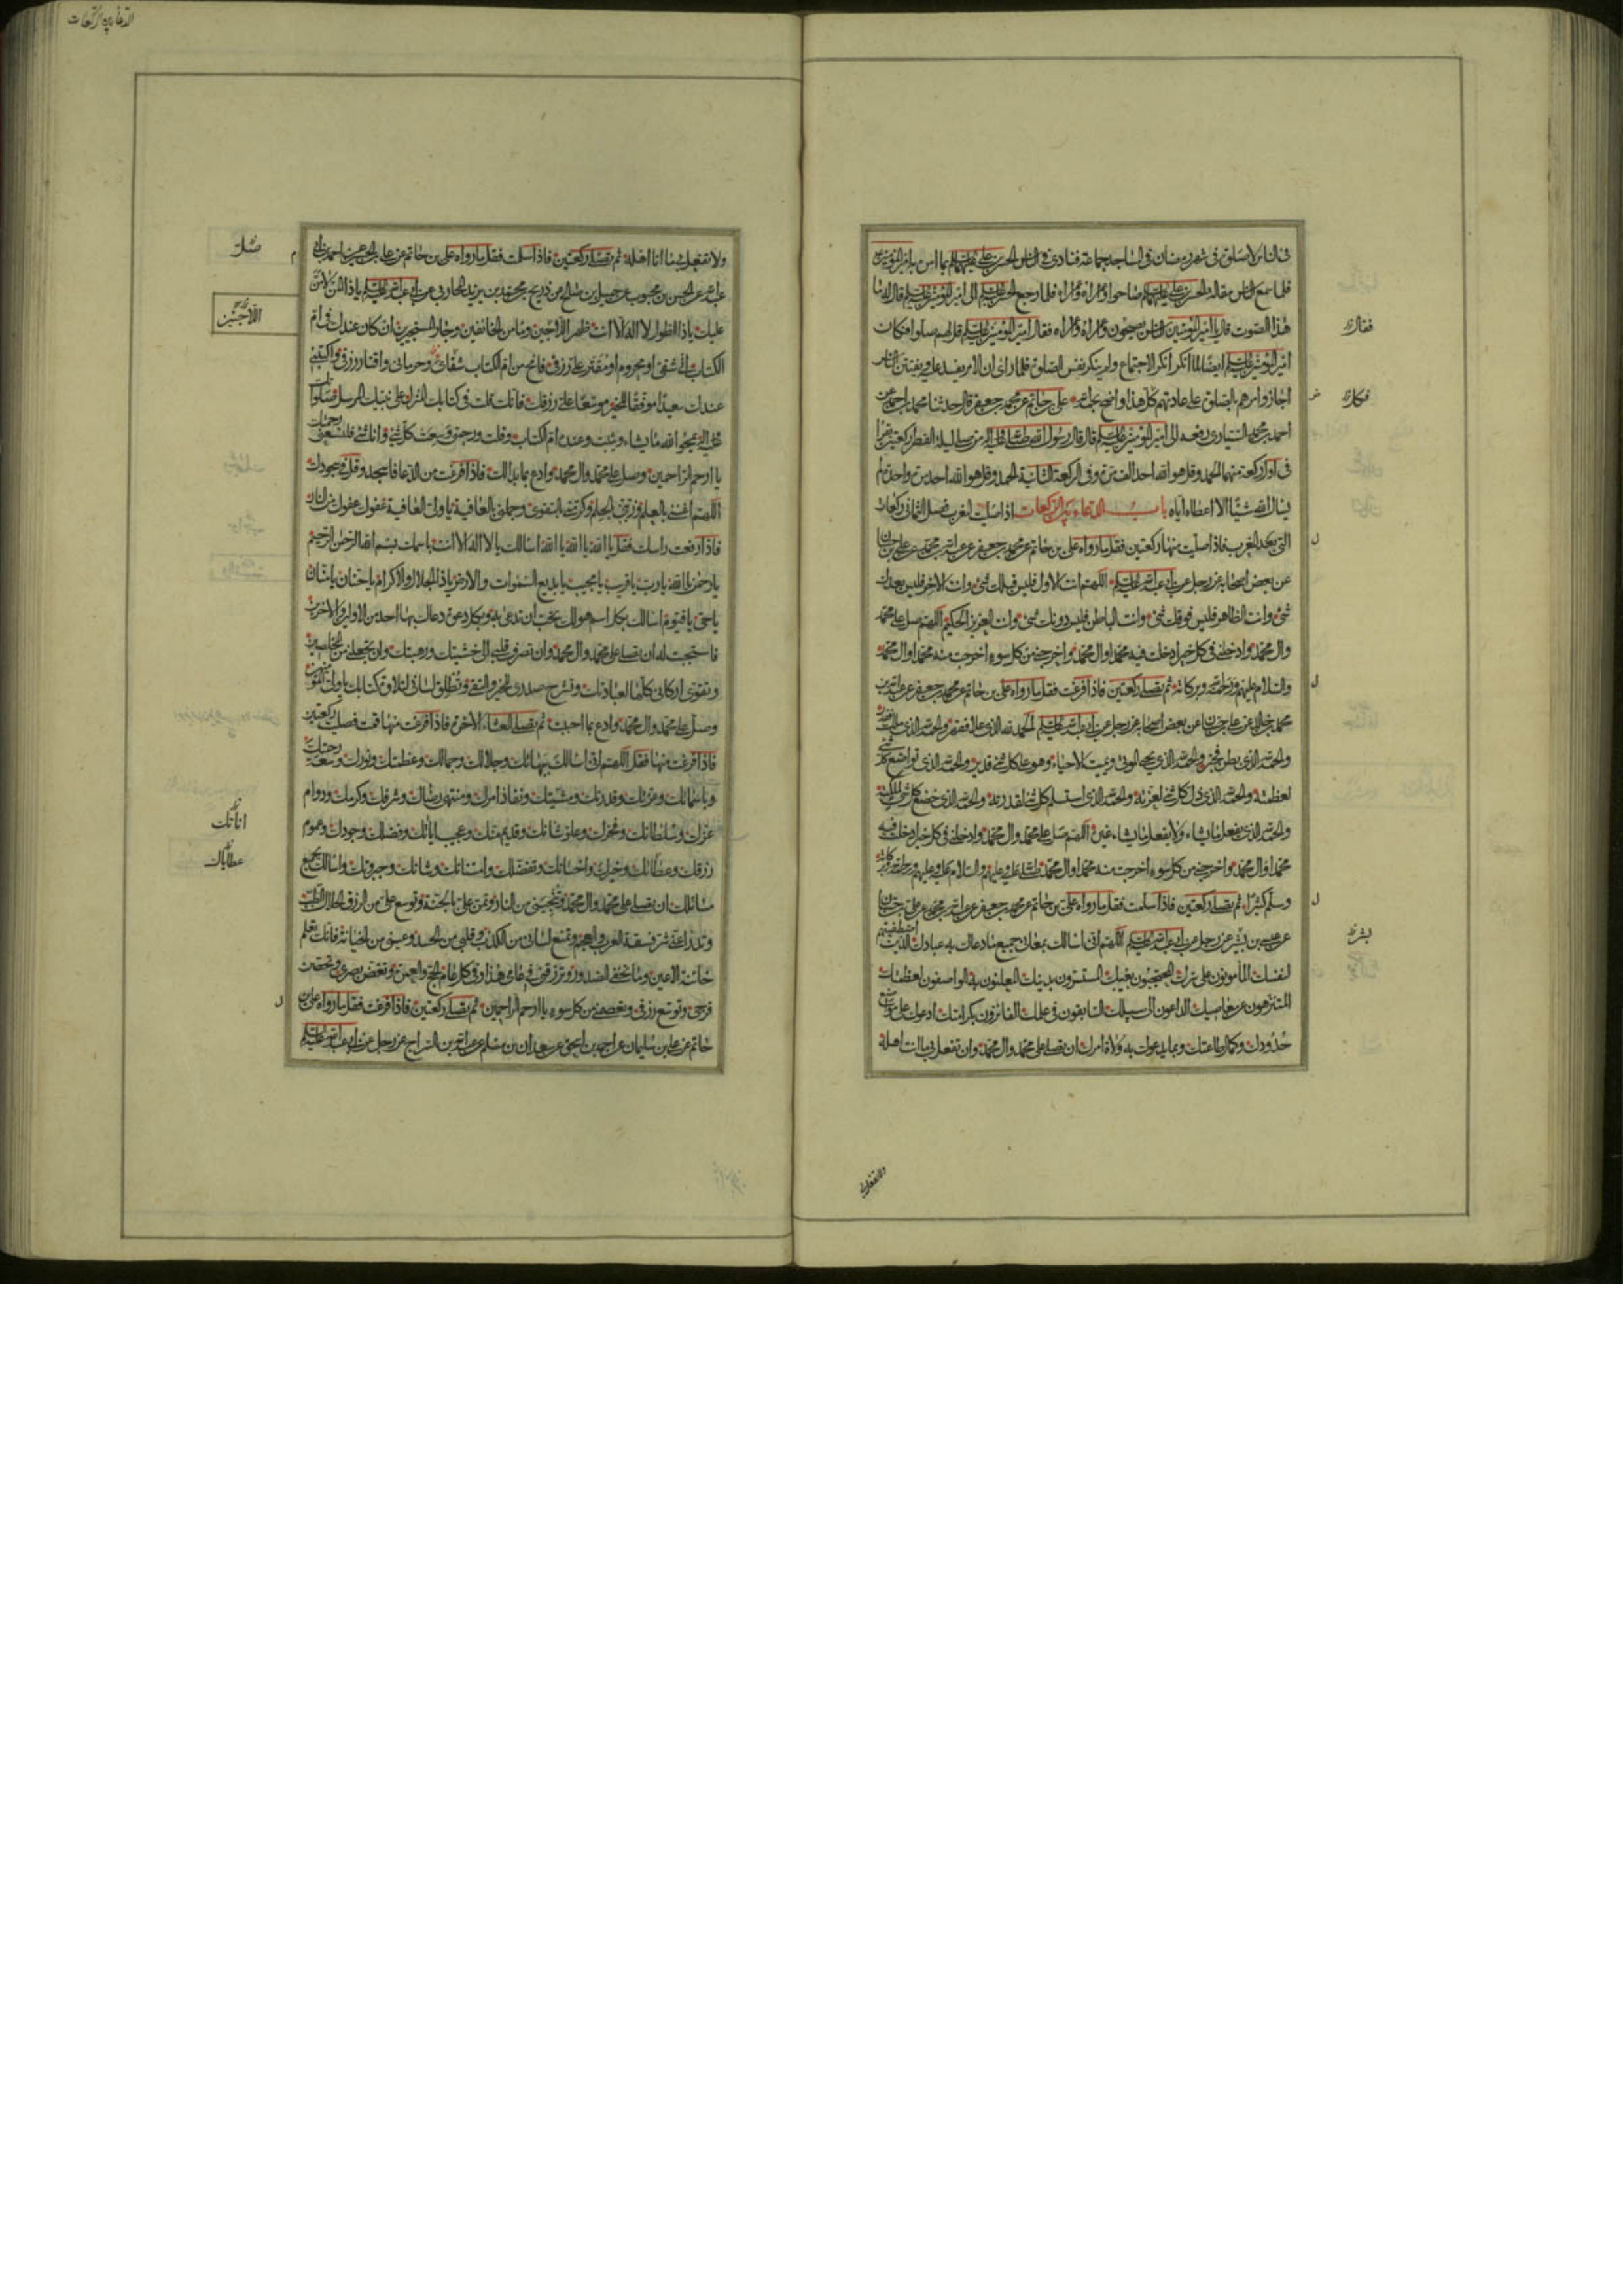 فى الناس لا صلوة فى شهر رمضان فى المساجد جماعة فنادى فى الناس الحسن بن على عليهما السلم بما امره به امير المؤمنين
فلما سمع الناس مقالة الحسن بن على عليهما السلم صاحوا واعمراه واعمراه فلما رجع الحسن عليه السلم الى امير المؤمنين عليه السلم قال له ما
هذا الصوت قال يا امير المؤمنين الناس يصيحون واعمراه واعمراه فقال امير المؤمنين عليه السلم قل لهم صلوا فكان
امير المؤمنين عليه السلم ايضا لما انكر انكر الاجتماع ولم ينكر نفس الصلوة فلما راى ان الامر يفسد عليه ويفتتن الناس
اجاز وامرهم بالصلوة على عادتهم فكل هذا واضح بحمد الله على بن حاتم عن محمد بن جعفر قال حدثنا محمد بن احمد عن
احمد بن محمد السيارى رفعه الى امير المؤمنين عليه السلم قال قال رسول الله صلى الله عليه واله من صلى ليلة الفطر ركعتين يقرا
فى اول ركعة منهما الحمد وقل هو الله احد الف مرة وفى الركعة الثانية الحمد وقل هو الله احد مرة واحدة لم
يسال الله شيئا الا اعطاه اياه باب الدعاء بين الركعات اذا صليت المغرب فصل الثمانى ركعات
التى بعد المغرب فاذا صليت منها ركعتين فقل ما رواه على بن حاتم عن محمد بن جعفر عن عبد الله بن محمد عن على بن حسان
عن بعض اصحابه عن رجل عن ابى عبد الله عليه السلم اللهم انت الاول فليس قبلك شئ وانت الاخر فليس بعدك
شئ وانت الظاهر فليس فوقك شئ وانت الباطن فليس دونك شئ وانت العزيز الحكيم اللهم صل على محمد
وال محمد وادخلنى فى كل خير ادخلت فيه محمدا وال محمد واخرجنى من كل سوء اخرجت منه محمدا وال محمد
والسلام عليهم ورحمة الله وبركاته ثم تصلى ركعتين فاذا فرغت فقل ما رواه على بن حاتم عن محمد بن جعفر عن عبد الله بن
محمد بن خالد عن على بن حسان عن بعض اصحابنا عن رجل عن ابى عبد الله عليه السلم الحمد لله الذى علا فقهر والحمد لله الذى ملك فقدر
والحمد لله الذى بطن فخبر والحمد لله الذى يحيى الموتى ويميت الاحياء وهو على كل شئ قدير والحمد لله الذى تواضع كل شئ
لعظمته والحمد لله الذى ذل كل شئ لعزته والحمد لله الذى استسلم كل شئ لقدرته والحمد لله الذى خضع كل شئ لملكته
والحمد لله الذى يفعل ما يشاء ولا يفعل ما يشاء غيره اللهم صل على محمد وال محمد وادخلنى فى كل خير ادخلت فيه
محمدا وال محمد واخرجنى من كل سوء اخرجت منه محمدا وال محمد صلى الله عليه وعليهم والسلام عليه وعليهم ورحمة الله وبركاته
وسلم كثيرا ثم تصلى ركعتين فاذا سلمت فقل ما رواه على بن حاتم عن محمد بن جعفر عن عبد الله بن محمد عن على بن حسان
عن عيسى بن بشير عن رجل عن ابى عبد الله عليه السلم اللهم انى اسالك بمعانى جميع ما دعاك به عبادك الذين اصطفيتهم
لنفسك المامونون على سرك المحتجبون بغيبك المستسرون بدينك المعلنون به الواصفون لعظمتك
المتنزهون عن معاصيك الداعون الى سبيلك السابقون فى علمك الفائزون بكرامتك ادعوك على مواضع
حدودك وكمال طاعتك وبما يدعوك به ولاة امرك ان تصلى على محمد وال محمد وان تفعل بى ما انت اهله
فقال
فكل
بشر
ولا تفعل
الدعاء بين الركعات
ولا تفعل بنا ما انا اهله ثم تصلى ركعتين فاذا سلمت فقل ما رواه على بن حاتم عن على بن الحسين عن احمد بن ابى
عبد الله عن الحسن بن محبوب عن جميل بن صالح عن ذريح بن محمد بن يزيد المحاربى عن ابى عبد الله عليه السلم يا ذا المن لا من
عليك يا ذا الطول لا اله الا انت ظهر اللاجين ومامن الخائفين وجار المستجيرين ان كان عندك فى ام
الكتاب انى شقى او محروم او مقتر على رزقى فامح من ام الكتاب شقائى وحرمانى واقتار رزقى واكتبنى
عندك سعيدا موفقا للخير موسعا على رزقك فانك قلت فى كتابك المنزل على نبيك المرسل صلواتك
عليه واله يمحو الله ما يشاء ويثبت وعنده ام الكتاب وقلت ورحمتى وسعت كل شئ وانا شئ فلتسعنى رحمتك
يا ارحم الراحمين وصل على محمد وال محمد وادع بما بدا لك فاذا فرغت من الدعا فاسجد وقل فى سجودك
اللهم اغننى بالعلم وزينى بالحلم وكرمنى بالتقوى وجملنى بالعافية يا ولى العافية عفوك عفوك من النار
فاذا رفعت راسك فقل يا الله يا الله يا الله اسالك يا لا اله الا انت باسمك بسم الله الرحمن الرحيم
يا رحمن يا الله يا رب يا قريب يا مجيب يا بديع السموات والارض يا ذا الجلال والاكرام يا حنان يا منان
يا حى يا قيوم اسالك بكل اسم هو لك تحب ان تدعى به وبكل دعوة دعاك بها احد من الاولين والاخرين
فاستجبت له ان تصلى على محمد وال محمد وان تصرف قلبى الى خشيتك ورهبتك وان تجعلنى من المخلصين
وتقوى اركانى كلها لعبادتك وتشرح صدرى للخير والتقى وتطلق لسانى لتلاوة كتابك يا ولى المؤمنين
وصل على محمد وال محمد وادع بما احببت ثم تصلى العشاء الاخرة فاذا فرغت منها قمت فصليت ركعتين
فاذا فرغت منها فقل اللهم انى اسالك ببهائك وجلالك وجمالك وعظمتك ونورك وسعة رحمتك
وباسمائك وعزتك وقدرتك ومشيتك ونفاذ امرك ومنتهى رضاك وشرفك وكرمك ودوام
عزك وسلطانك وفخرك وعلو شانك وقديم منك وعجيب اياتك وفضلك وجودك وعموم
رزقك وعطائك وخيرك واحسانك وتفضلك وامتنانك وشانك وجبروتك واسالك بجميع
مسائلك ان تصلى على محمد وال محمد وتنجينى من النار وتمن على بالجنة وتوسع على من الرزق الحلال الطيب
وتدرا عنى شر فسقة العرب والعجم وتمنع لسانى من الكذب وقلبى من الحسد وعينى من الخيانة فانك تعلم
خائنة الاعين وما تخفى الصدور وترزقنى فى عامى هذا وفى كل عام الحج والعمرة وتغض بصرى وتحصن
فرجى وتوسع رزقى وتعصمنى من كل سوء يا ارحم الراحمين ثم تصلى ركعتين فاذا فرغت فقل ما رواه على بن
حاتم عن على بن سليمان عن احمد بن اسحق عن سعدان بن مسلم عن عبد الله بن السراج عن رجل عن ابى عبد الله عليه السلم
اللاجئين
عطاياك